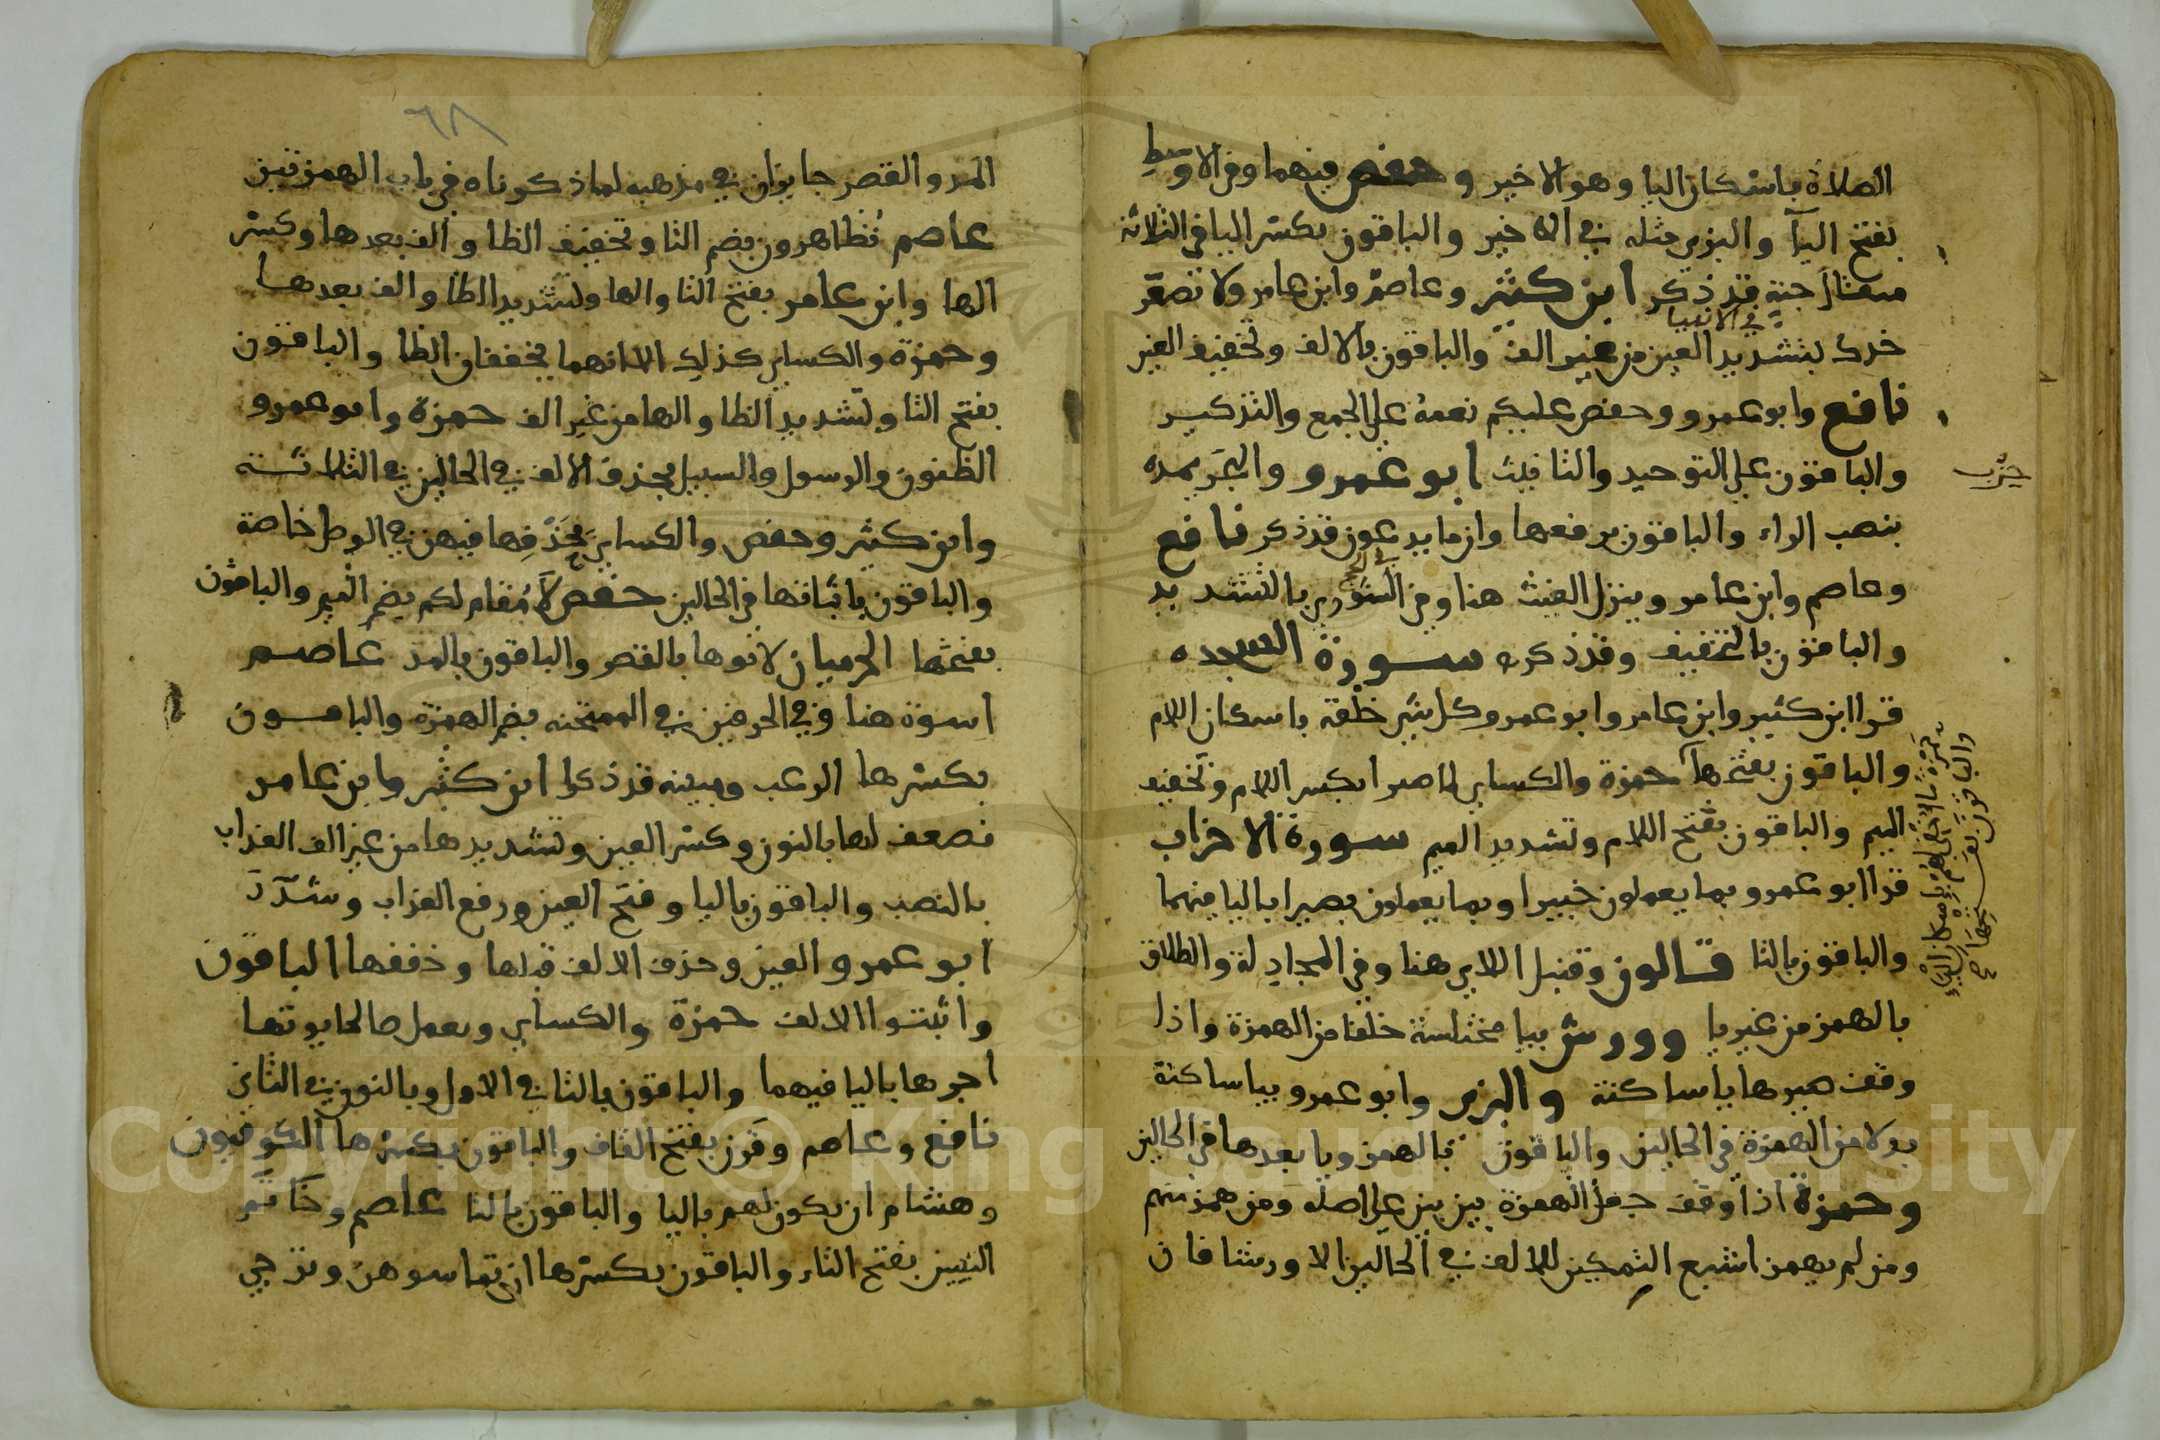 الصلاة باسكان اليا وهو الاخير وحفص فيهما وفي الاوسط
بفتح اليآ والبزي مثله في الاخير والباقون بكسر اليا في الثلاثة
مثقال حبة قد ذكر ابن كثير وعاصم وابن عامر ولا تصعر
في الانبيا
خدك بتشديد العين من غير الف والباقون بالالف وتخفيف العين
نافع وابو عمرو وحفص عليكم نعمه على الجمع والتذكير
والباقون على التوحيد والتانيث ابو عمرو والبحر يمده
حزب
بنصب الراء والباقون برفعها وان ما يدعون قد ذكر نافع
في الحج
وعاصم وابن عامر وينزل الغيث هنا وفي الشورى بالتشديد
والباقون بالتخفيف وقد ذكر سورة السجده
قرا ابن كثير وابن عامر وابو عمرو كل شي خلقه باسكان اللام
والباقون بفتحها حمزة والكساي لما صبروا بكسر اللام وتخفيف
الميم والباقون بفتح اللام وتشديد الميم سورة الاحزاب
حمزة ما اخفي لهم باسكان الياء
والباقون بفتحها صح
قرا ابو عمرو بما يعملون خبيرا وبما يعملون بصيرا باليا فيهما
والباقون بالتا قالون وقنبل اللاي هنا وفي المجادلة والطلاق
بالهمز من غير يا وورش بيا مختلسة خلفا من الهمزة واذا
وقف صيرها يا ساكنة والبزي وابو عمرو بيا ساكنة
بدلا من الهمزة في الحالين والباقون بالهمز ويا بعدها في الحالين
وحمزة اذا وقف جعل الهمزة بين بين على اصله ومن همز منهم
ومن لم يهمز اشبع التمكين للالف في الحالين الا ورشا فان
٦٨
المد والقصر جايزان في مذهبه لما ذكرناه في باب الهمزتين
عاصم تظاهرون بضم التا وتخفيف الظا والف بعدها وكسر
الها وابن عامر بفتح التا والها وتشديد الظا والف بعدها
وحمزة والكساي كذلك الا انهما يخففان الظا والباقون
بفتح التا وتشديد الظا والها من غير الف حمزة وابو عمرو
الظنون والرسول والسبيل بحذف الالف في الحالين في الثلاثة
وابن كثير وحفص والكساي بحذفها فيهن في الوصل خاصة
والباقون باثباتها في الحالين حفص لا مقام لكم بضم الميم والباقون
بفتحها الحرميان لاتوها بالقصر والباقون بالمد عاصم
اسوة هنا وفي الحرفين في الممتحنه بضم الهمزة والباقون
بكسرها الرعب ومبينه قد ذكرا ابن كثير وابن عامر
نضعف لها بالنون وكسر العين وتشديدها من غير الف العذاب
بالنصب والباقون باليا وفتح العين ورفع العذاب وشدد
ابو عمرو العين وحذف الالف قبلها وخففها الباقون
واثبتوا الالف حمزة والكساي ويعمل صالحا يوتها
اجرها باليا فيهما والباقون بالتا في الاول وبالنون في الثاني
نافع وعاصم وقرن بفتح القاف والباقون بكسرها الكوفيون
وهشام ان يكون لهم باليا والباقون بالتا عاصم وخاتم
النبيين بفتح التاء والباقون بكسرها ان تماسوهن وترجي
Copyright © King Saud University